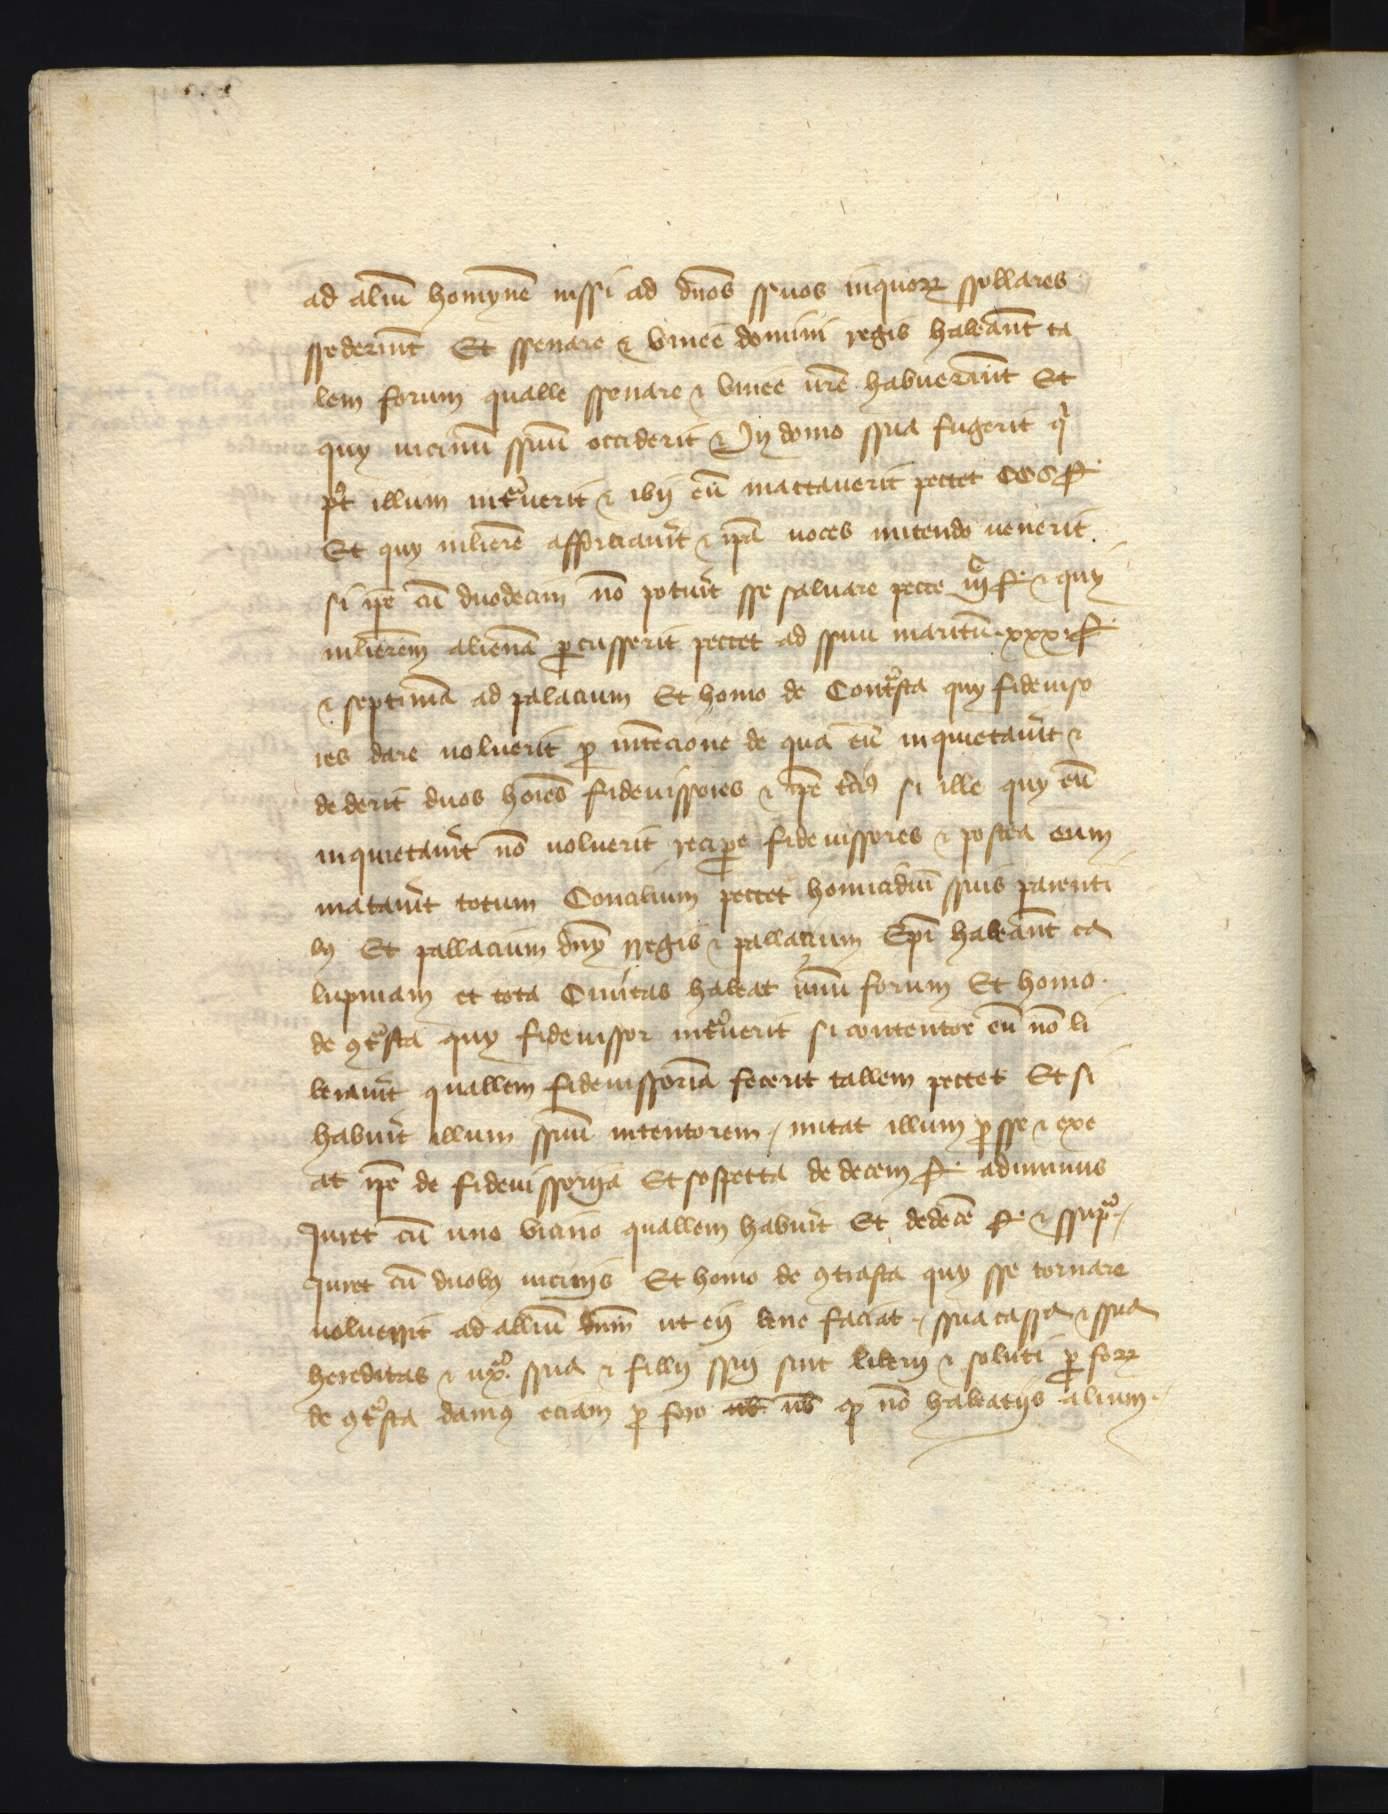 ad aliũ homynẽ nissi ad dños ssuos in quorꝝ ssollares
ssederint Et ssenare ⁊ vinee domini regis habeãnt ta
lem forum qualle ssenare ⁊ vinee ũre habuerãint Et
quy uicinũ ssuũ occiderit ⁊ Jn domo ssua fugerit q̃
pꝰt illum intᵃuerit ⁊ ibij eũ mactauerit pectet CCC sꝰ
Et quy mlierẽ afforciauit̃ ⁊ ip̃a uoces mitendo uenerit
si ip̃e cũ duodecim nõ potuit̃ sse saluare pecte iijᶜ sꝰ ⁊ quy
mlierẽm alienã ꝑcusserit pectet ad ssuũ maritũ xxx sꝰ
⁊ septimã ad palacium Et homo de Contᵃsta quy fideiuso
res dare uoluerit ꝑ intẽcione de qua eũ inquietauit̃ ⁊
dederit duos hoı̃es fideiussores ⁊ ip̃e tc̃iꝰ si ille quy eũ
inquietauit̃ nõ uoluerit reciꝑe fideiussores ⁊ postea eum
matauit̃ totum Concilium pectet homicidiũ ssuis parenti
bꝰ Et pallacium dñy rregis ⁊ pallacium Ep̃i habeãnt ca
lupniam et tota Ciuitas habeat unũ forum Et homo
de ꝯtᵃsta quy fideiussor intᵃuerit si contentor eũ nõ li
berauit̃ quallem fideiussoriã fecerit tallem pectet Et si
habuit̃ illum ssuũ intentorem mitat illum ꝑ sse ⁊ exe
at ip̃e de fideiussoryã Et sospetta de decem sꝰ adiminus
Juret cũ uno vicino quallem habuit̃ Et dedecẽ sꝰ ⁊ ssupᵃ
Juret cũ duobꝰ uicinijs Et homo de ꝯtrasta quy sse tornare
uoluerrit ad alliũ dñm ut eij bene faciat ssua cassa ⁊ ssua
hereditas ⁊ uxᵒ ssua ⁊ fillij ssuij sint liberij ⁊ soluti ꝑ forꝝ
de ꝯtᵃsta damꝰ eciam ꝑ foro ub̃ ũb ꝙ nõ habeatijs alium